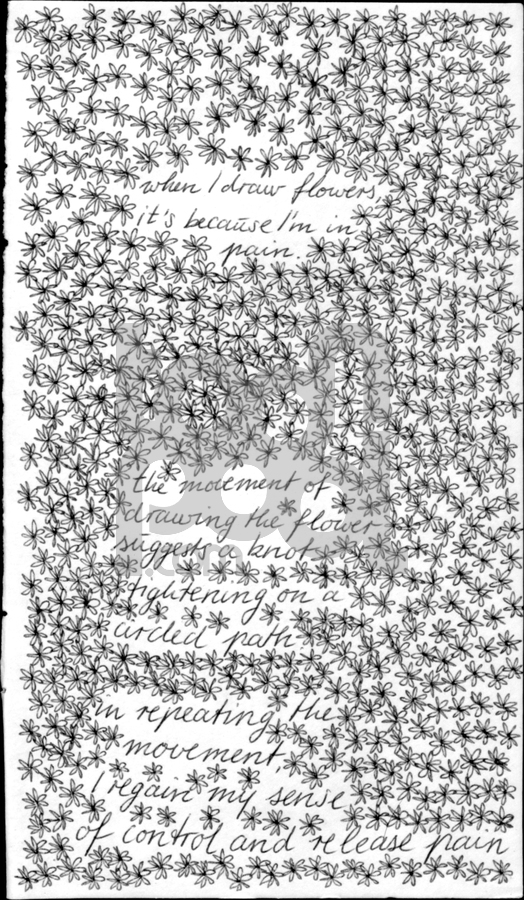 when I draw flowers,
it's because I'm in
pain.
the movement of
drawing the flower
suggests a knot
tightening on a
circled path.
in repeating the
movement
I regain my sense
of control and release pain